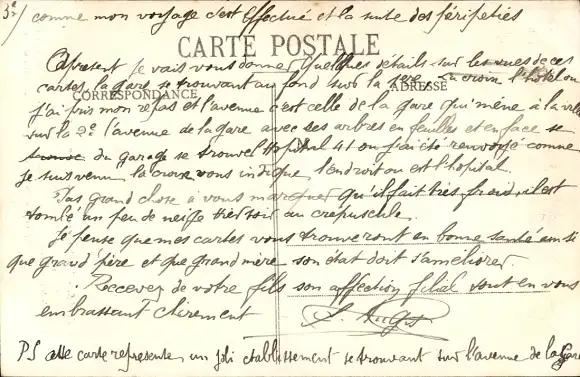 3º/ comme mon voyage s'est effectué et la suite des péripeties
CARTE POSTALE
A présent je vais vous donner quelques détails sur les vues de ces
cartes la gare se trouvant au fond sur la 1ere la croix l'hotel ou
CORRESPONDANCE
ADRESSE
j'ai pris mon repas et l'avenue c'est celle de la gare qui mène à la ville
sur la 2e l'avenue de la gare avec ses arbres en feuilles et en face se
du garage se trouve l'Hopital 41 ou j'ai été renvoyé comme
je suis venu la croix vous indique l'endroit ou est l'hopital.
Pas grand chose à vous marquer qu'il fait très froid, il est
tombé un peu de neige hier soir au crépuscule.
Je pense que mes cartes vous trouveront en bonne santé ainsi
que grand père et que grand mère son état doit s'améliorer
Recevez de votre fils son affection filial tout en vous
embrassant chèrement
PS cette carte represente un joli etablissement se trouvant sur l'avenue de la Gare